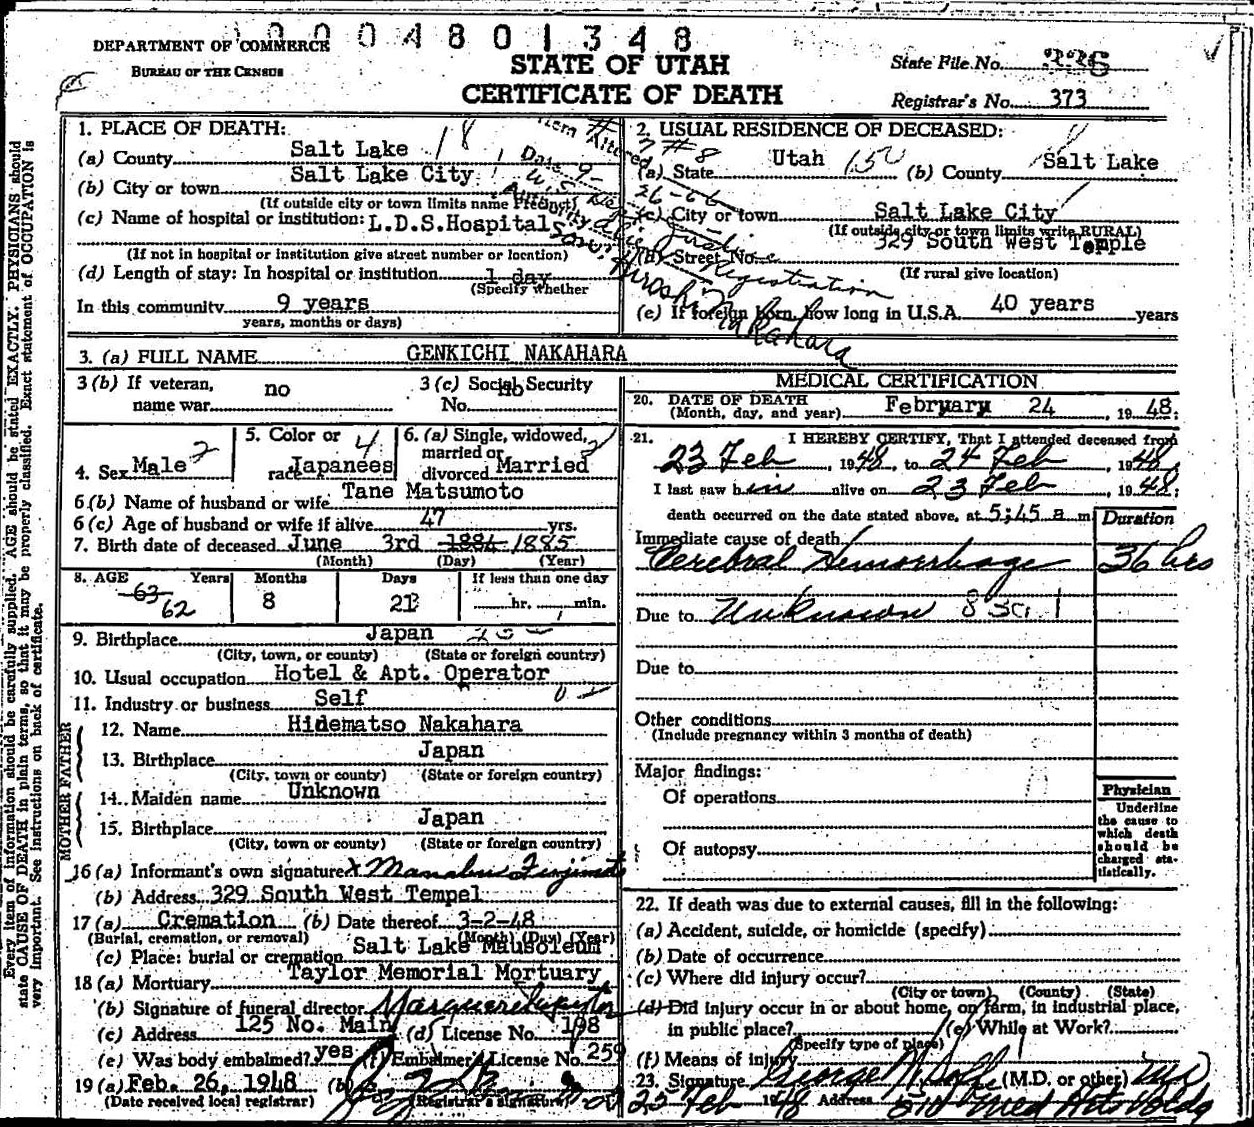 0 0 0 4 8 0 1 3 4 8
DEPARTMENT OF COMMERCE
BUREAU OF THE CENSUS
STATE OF UTAH
CERTIFICATE OF DEATH
State File No. 226
Registrar's No. 373
Every item of information should be carefully supplied. AGE should be stated EXACTLY. PHYSICIANS should
state CAUSE OF DEATH in plain terms, so that it may be properly classified. Exact statement of OCCUPATION is
very important. See instructions on back of certificate.
1. PLACE OF DEATH: 18
(a) County Salt Lake
(b) City or town Salt Lake City
(If outside city or town limits name Precinct)
(c) Name of hospital or institution: L.D.S.Hospital
(If not in hospital or institution give street number or location)
(d) Length of stay: In hospital or institution 1 day
(Specify whether
In this community 9 years
years, months or days)
Item # 7 #8
Altered
Date 9-26-66
Authority
Registration
Son: Hiroshi Nakahara
2. USUAL RESIDENCE OF DECEASED:
(a) State Utah 150 (b) County Salt Lake
(c) City or town Salt Lake City
(If outside city or town limits write RURAL)
(d) Street No. 329 South West Temple
(If rural give location)
(e) If foreign born, how long in U.S.A. 40 years years
3. (a) FULL NAME GENKICHI NAKAHARA
3 (b) If veteran, name war no
3 (c) Social Security No. no
4. Sex Male 2
5. Color or race Japanees 4
6. (a) Single, widowed, married or divorced Married 2
6 (b) Name of husband or wife Tane Matsumoto
6 (c) Age of husband or wife if alive 47 yrs.
7. Birth date of deceased June 3rd 1884 1885
(Month) (Day) (Year)
8. AGE Years Months Days If less than one day
63 62 8 21 hr. min.
9. Birthplace Japan
(City, town, or county) (State or foreign country)
10. Usual occupation Hotel & Apt. Operator
11. Industry or business Self
FATHER
12. Name Hidematso Nakahara
13. Birthplace Japan
(City, town or county) (State or foreign country)
MOTHER
14. Maiden name Unknown
15. Birthplace Japan
(City, town, or county) (State or foreign country)
16 (a) Informant's own signature X Manabu Fujimoto
(b) Address 329 South West Tempel
17 (a) Cremation (b) Date thereof 3-2-48
(Burial, cremation, or removal) (Month) (Day) (Year)
(c) Place: burial or cremation Salt Lake Mausoleum
18 (a) Mortuary Taylor Memorial Mortuary
(b) Signature of funeral director
(c) Address 125 No. Main (d) License No. 198
(e) Was body embalmed? yes (f) Embalmer's License No. 259
19 (a) Feb. 26, 1948 (b)
(Date received local registrar) (Registrar's signature)
MEDICAL CERTIFICATION
20. DATE OF DEATH
(Month, day, and year) February 24, 1948;
21. I HEREBY CERTIFY, That I attended deceased from
23 Feb, 1948, to 24 Feb, 1948,
I last saw him alive on 23 Feb, 1948;
death occurred on the date stated above, at 5;45 a m
Duration
Immediate cause of death
Cerebral Hemorrhage 36 hrs
Due to Unknown 83a 1
Due to
Other conditions
(Include pregnancy within 3 months of death)
Major findings:
Of operations
Of autopsy
Physician
Underline
the cause to
which death
should be
charged sta-
tistically.
22. If death was due to external causes, fill in the following:
(a) Accident, suicide, or homicide (specify)
(b) Date of occurrence
(c) Where did injury occur?
(City or town) (County) (State)
(d) Did injury occur in or about home, on farm, in industrial place,
in public place? (e) While at Work?
(Specify type of place)
(f) Means of injury
23. Signature George (M.D. or other) MD
25 Feb 1948 Address 510 Med Arts Bldg